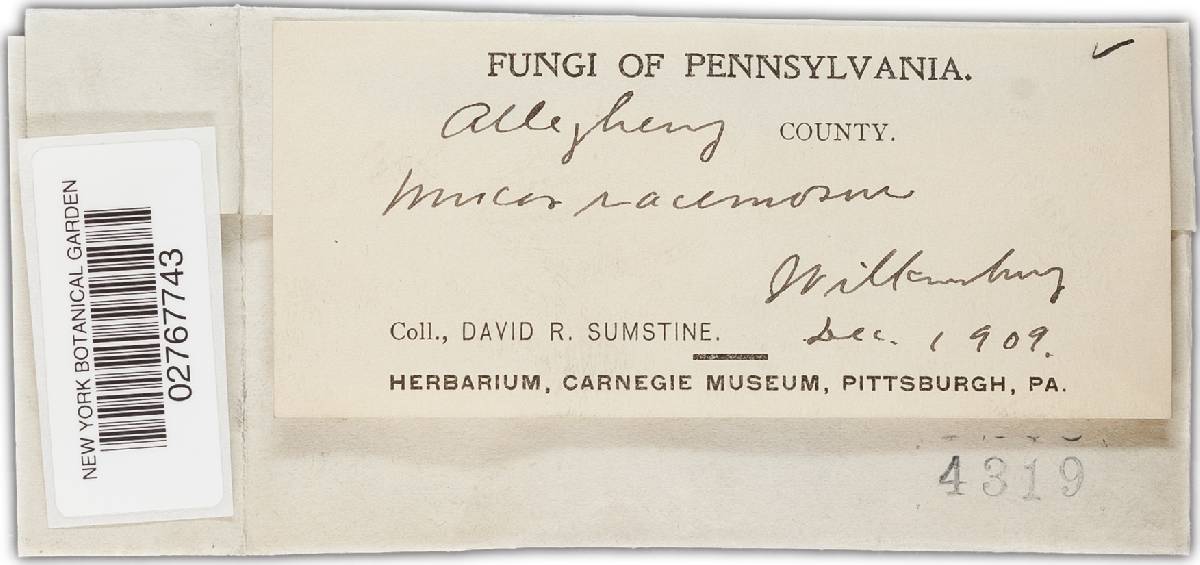 FUNGI OF PENNSYLVANIA.
Allegheny COUNTY.
Mucor racemosus
Wilkinsburg
Coll., DAVID R. SUMSTINE. Dec. 1909.
HERBARIUM, CARNEGIE MUSEUM, PITTSBURGH, PA.
NEW YORK BOTANICAL GARDEN
02767743
4319